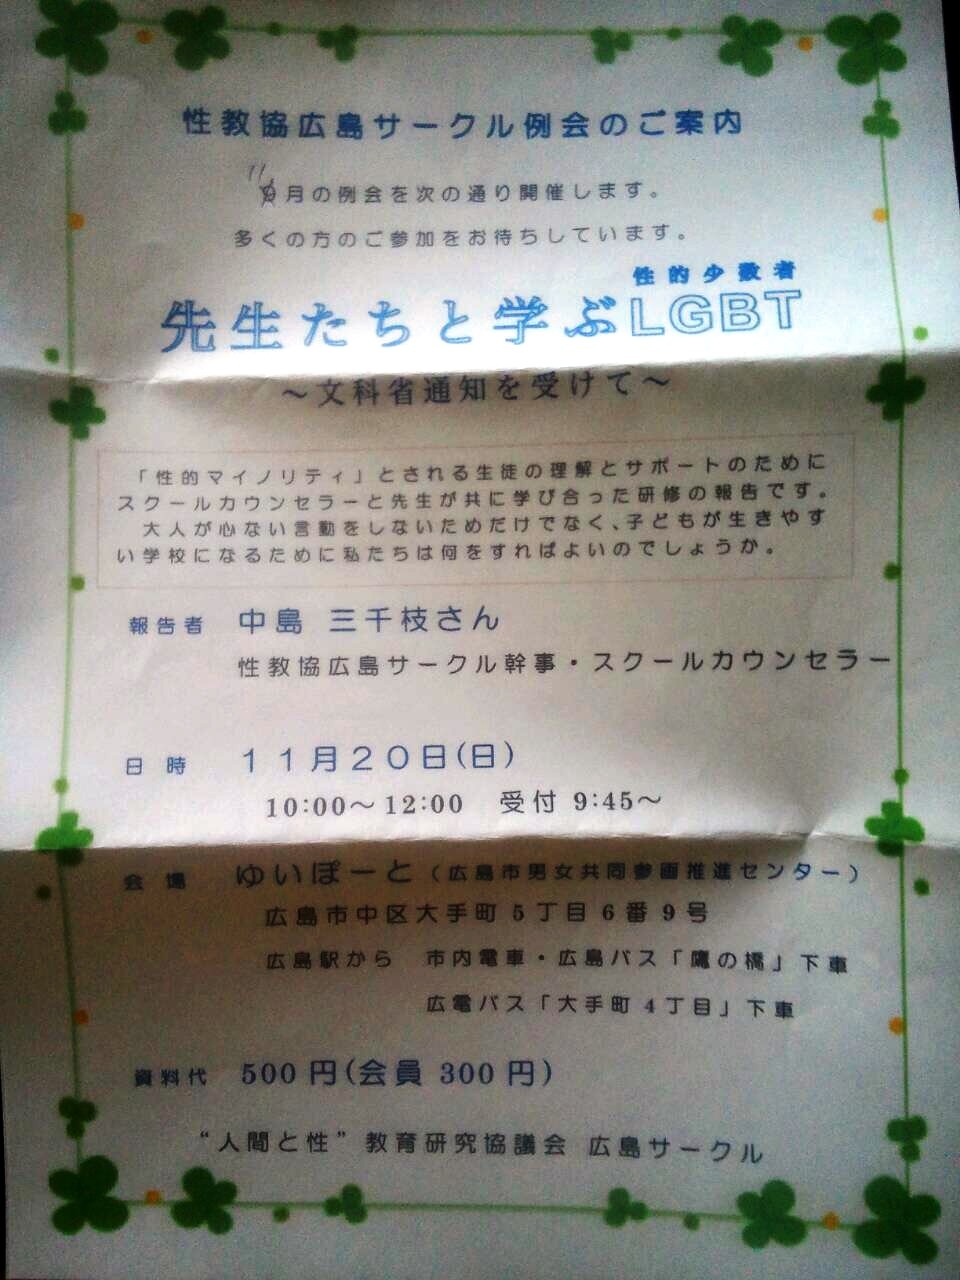 性教協広島サークル例会のご案内
11月の例会を次の通り開催します。
多くの方のご参加をお待ちしています。
性的少数者
先生たちと学ぶLGBT
～文科省通知を受けて～
「性的マイノリティ」とされる生徒の理解とサポートのために
スクールカウンセラーと先生が共に学び合った研修の報告です。
大人が心ない言動をしないためだけでなく、子どもが生きやす
い学校になるために私たちは何をすればよいのでしょうか。
報告者 中島 三千枝さん
性教協広島サークル幹事・スクールカウンセラー
日時 11月20日(日)
10:00～12:00 受付 9:45～
会場 ゆいぽーと(広島市男女共同参画推進センター)
広島市中区大手町5丁目6番9号
広島駅から 市内電車・広島バス「鷹の橋」下車
広電バス「大手町4丁目」下車
資料代 500円(会員 300円)
“人間と性”教育研究協議会 広島サークル